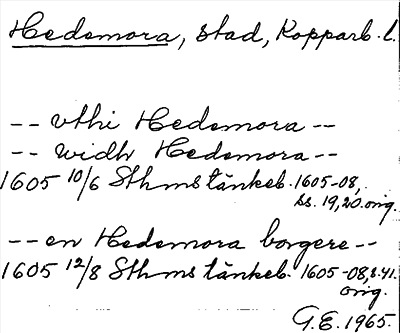 Hedemora, stad, Kopparb. l.
-- vthi Hedemora --
-- widh Hedemora --
1605 10/6 Sthms tänkeb. 1605-08,
ss. 19, 20. orig.
-- en Hedemora borgere --
1605 12/8 Sthms tänkeb. 1605-08, s. 41.
orig.
G.E. 1965.